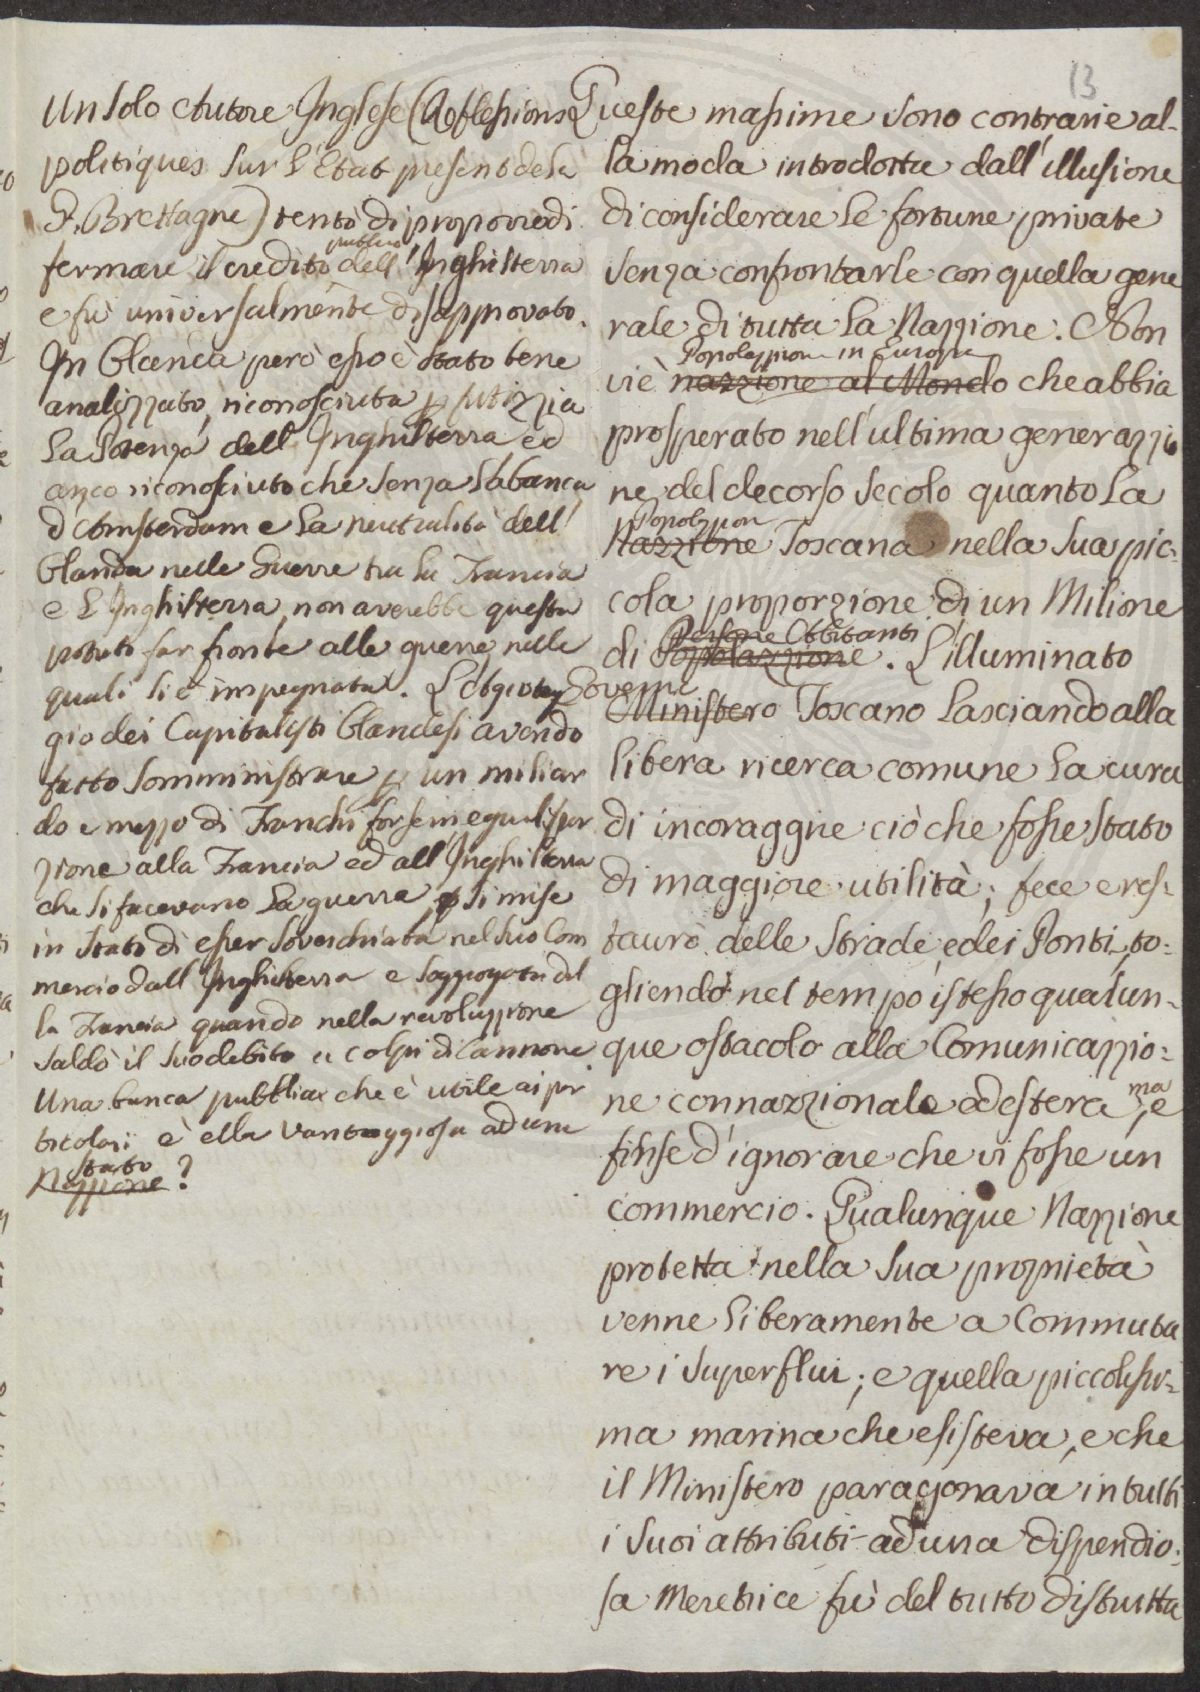 13
Un solo Autore Inglese (Reflessions
politiques sur l'Etat present de la
G. Brettagne) tentò di proporre di
fermare il credito publico dell'Inghilterra
e fù universalmente disapprovato.
In Olanda però esso è stato bene
analizzato, riconosciuta p fittizzia
la Potenza dell Inghilterra ed
anco riconosciuto che senza la banca
d'Amsterdam e la neutralità dell'
Olanda nelle Guerre tra la Francia
e l'Inghilterra, non averebbe questa
potuto far fronte alle guerre nelle
quali si è impegnata. L'Agiotag
gio dei Capitalisti Olandesi avendo
fatto somministrare p un miliar
do e mezzo di Franchi forse in eguali por
zione alla Francia ed all'Inghilterra
che si facevano la guerra, si mise
in stato di esser soverchiata nel suo Com
mercio dall Inghilterra e soggiogata dal
la Francia quando nella revoluzzione
saldò il suo debito a colpi di Cannone.
Una banca pubblica che è utile ai par
ticolari è ella vantaggiosa ad una
stato
Nazzione?
Queste massime sono contrarie al-
la moda introdotta dall'illusione
di considerare le fortune private
senza confrontarle con quella gene
rale di tutta la Nazzione. Non
Popolazzione in Europa
vi è nazzione al Mondo che abbia
prosperato nell'ultima generazzio
ne del decorso secolo quanto la
Popolazzion
Nazzione Toscana nella sua pic-
cola proporzione di un Milione
Persone Abbitanti
di Popolazzione. L'illuminato
Governo
Ministero Toscano lasciando alla
libera ricerca comune la cura
di incoraggire ciò che fosse stato
di maggiore utilità; fece e res-
taurò delle strade, e dei Ponti, to-
gliendo nel tempo istesso qualun-
que ostacolo alla Comunicazzio-
ne connazzionale ed estera, ma e
finse d'ignorare che vi fosse un
commercio. Qualunque Nazzione
protetta nella sua proprietà
venne liberamente a Commuta
re i superflui; e quella piccolissi-
ma marina che esisteva, e che
il Ministero paragonava in tutti
i suoi attributi ad una dispendio-
sa Meretrice fù del tutto distrutta